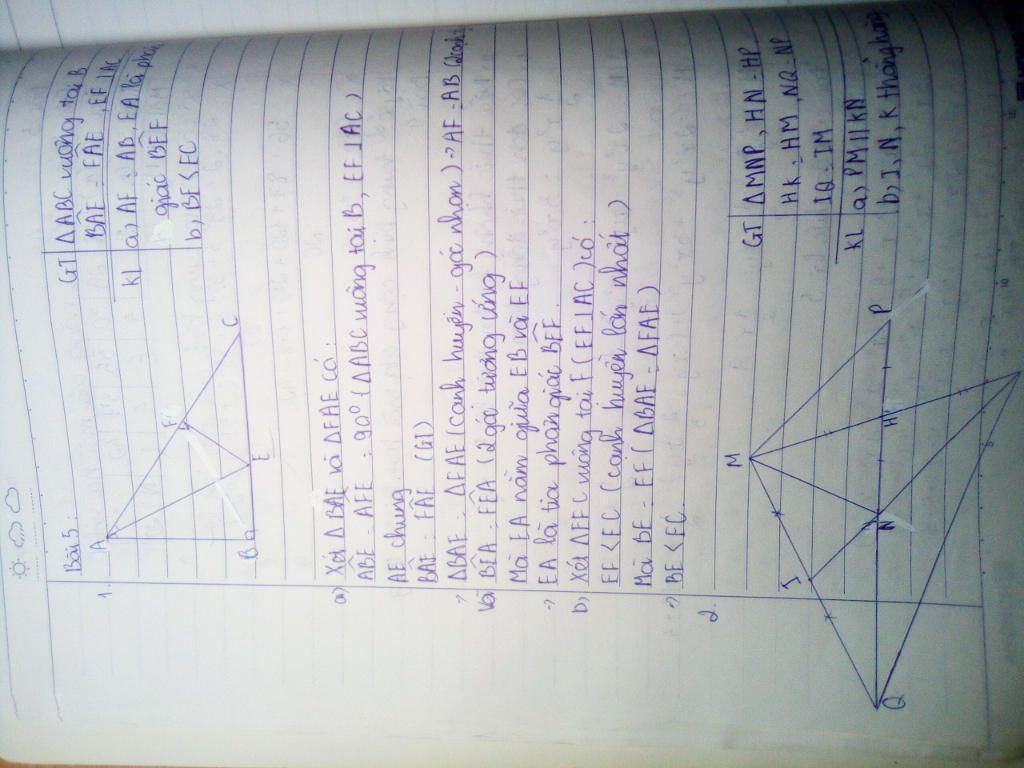 Bài 5:
1.
A
F
C
B
E
GT
ΔABC vuông tại B
BÂE = FÂE, EF⊥AC
KL
a) AF = AB, EA là phân
giác BÊF
b, BE < EC
a) Xét ΔBAE và ΔFAE có:
ABE = AFE = 90° (ΔABC vuông tại B, EF⊥AC)
AE chung
BÂE = FÂE (GT)
=> ΔBAE = ΔFAE (cạnh huyền - góc nhọn) => AF = AB (2 cạnh
Và BÊA = FÊA (2 góc tương ứng)
Mà EA nằm giữa EB và EF
=> EA là tia phân giác BÊF
b, Xét ΔFEC vuông tại F (EF⊥AC) có:
EF < EC (cạnh huyền lớn nhất)
Mà BE = EF (ΔBAE = ΔFAE)
=> BE < EC
2.
M
I
N
H
P
Q
GT
ΔMNP, HN = HP
HK = HM, NQ = NP
IQ = IM
KL
a) PM // KN
b, I, N, K thẳng hàng